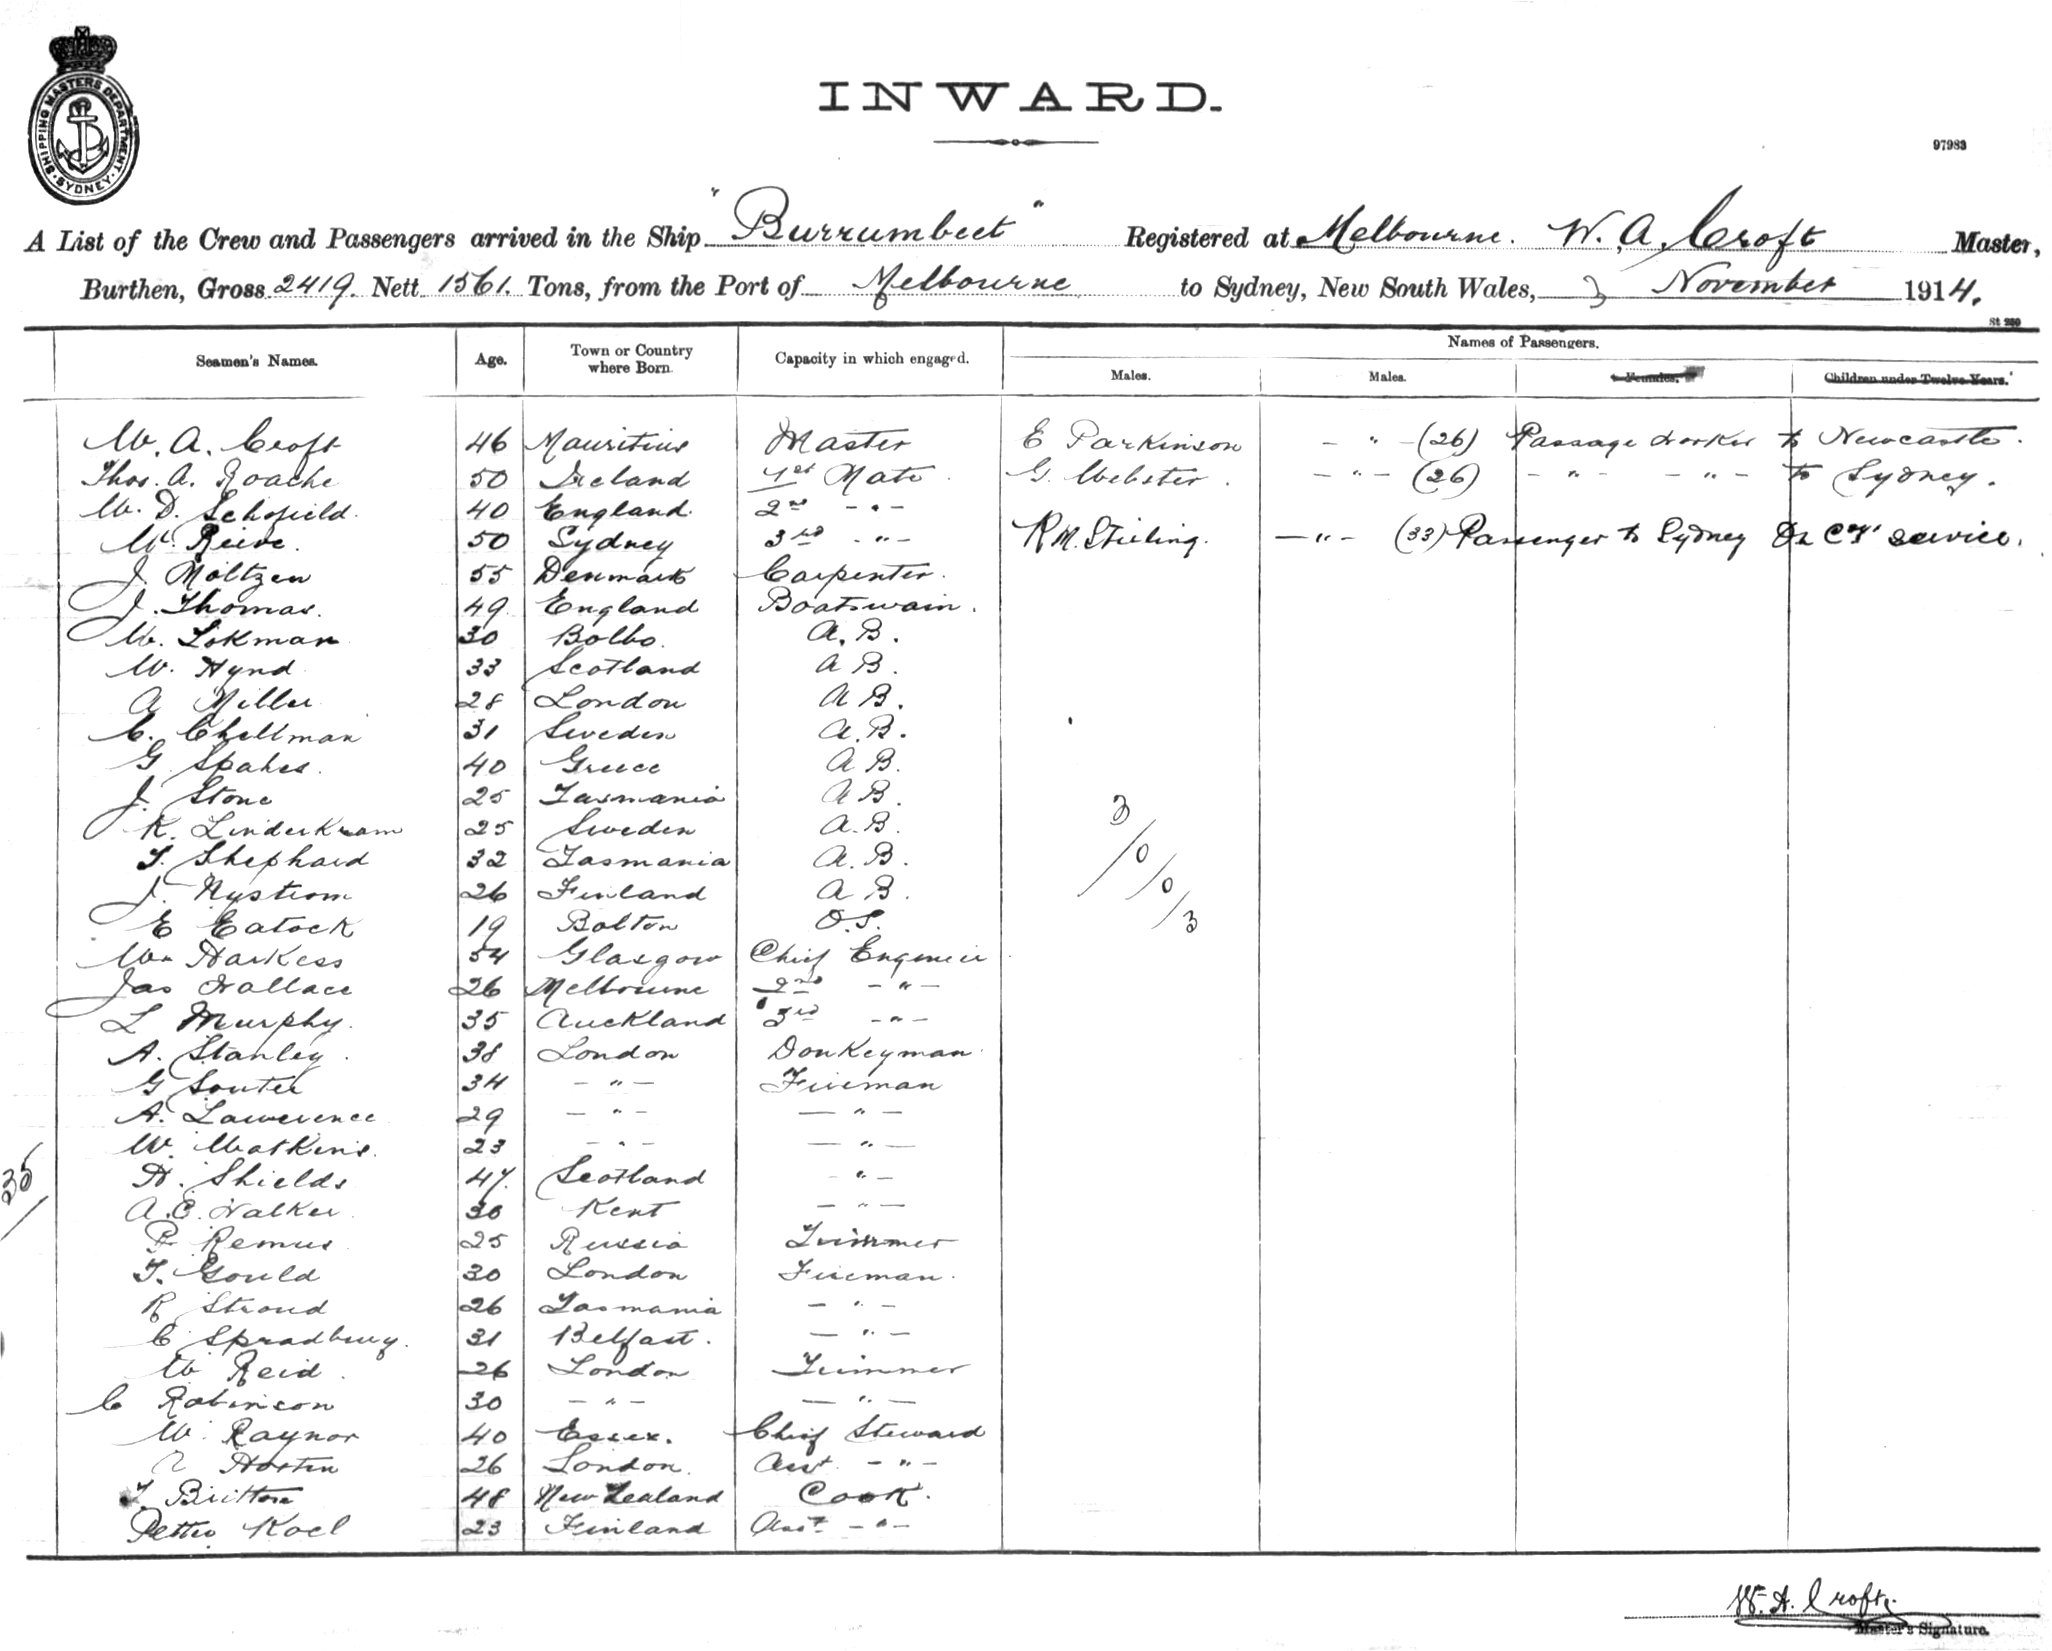 SHIPPING MASTERS DEPARTMENT. SYDNEY.
INWARD.
97983
A List of the Crew and Passengers arrived in the Ship "Burrumbeet" Registered at Melbourne. W. A. Croft Master,
Burthen, Gross 2419. Nett 1561. Tons, from the Port of Melbourne to Sydney, New South Wales, 3 November 1914.
St 250
Seamen's Names. Age. Town or Country where Born. Capacity in which engaged. Names of Passengers.
Males. Males. Females. Children under Twelve Years.
W. A. Croft 46 Mauritius Master E Parkinson - " - (26) Passage Worker to Newcastle.
Thos. A. Roache 50 Ireland 1st Mate G. Webster. - " - (26) - " - - " - to Sydney.
W. D. Schofield. 40 England. 2nd - " -
W. Reive. 50 Sydney 3rd - " - R.M. Stirling. - " - (33) Passenger to Sydney On Co's service.
J. Moltzen 55 Denmark Carpenter.
J. Thomas. 49 England Boatswain.
W. Lokman 30 Bolbo. A. B.
W. Hynd 33 Scotland A B.
A Miller 28 London A B.
C. Chellman 31 Sweden A. B.
G Spahes. 40 Greece A B.
J. Stone 25 Tasmania A B.
K. Linderkram 25 Sweden A. B. 3
T. Shephard 32 Tasmania A. B. / 0
J. Nystrom 26 Finland A B. / 0
E Eatock 19 Bolton O.S. / 3
Wm Harkess 54 Glasgow Chief Engineer
Jas Wallace 26 Melbourne 2nd - " -
L Murphy. 35 Auckland 3rd - " -
A. Stanley. 38 London Donkeyman
G Souter 34 - " - Fireman
A. Lawerence 29 - " - - " -
W. Watkins. 23 - " - - " -
35
H. Shields 47. Scotland - " -
A. E. Walker. 30 Kent - " -
P. Remus 25 Russia Trimmer
T. Gould 30 London Fireman.
R Stroud 26 Tasmania - " -
C Spradbury. 31 Belfast. - " -
W Reid. 26 London Trimmer
C Robinson 30 - " - - " -
W. Raynor 40 Essex. Chief Steward
Hosten 26 London. Asst. - " -
T. Britton 48 New Zealand Cook.
Petter Koel 23 Finland Asst - " -
W. A. Croft.
Master's Signature.